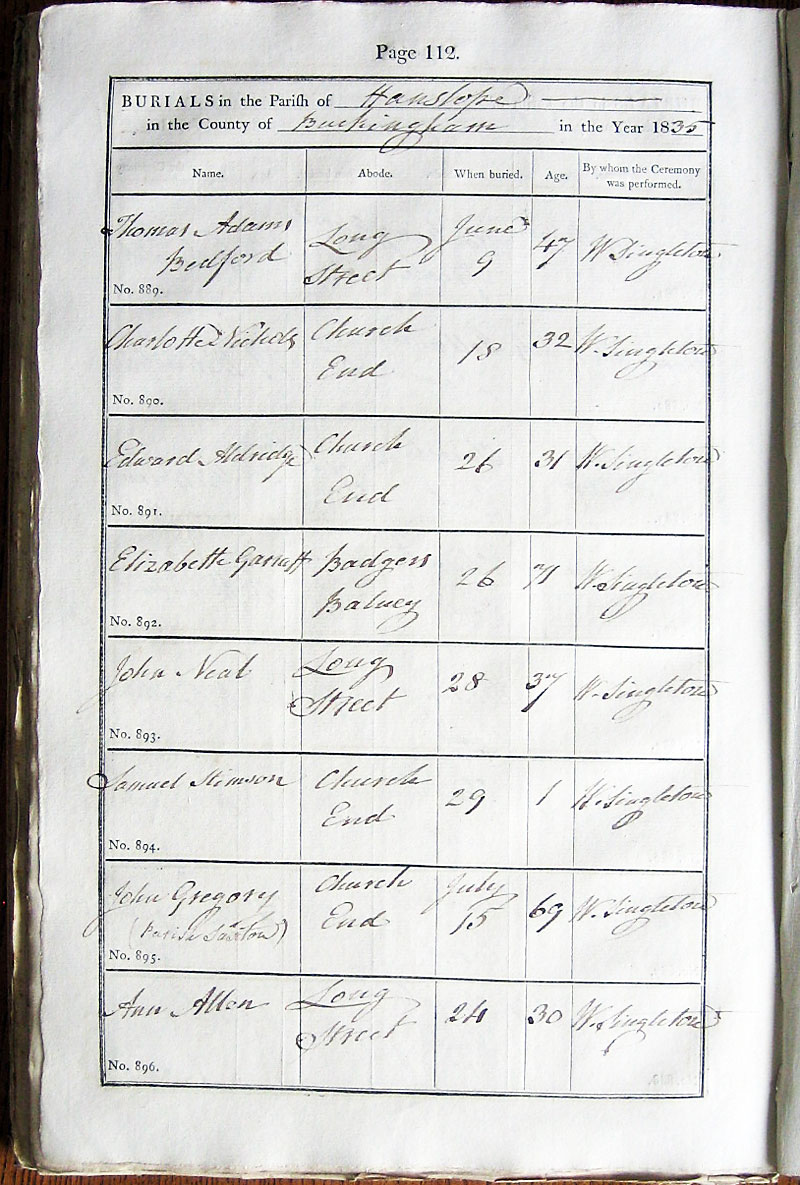 Page 112.
BURIALS in the Parish of Hanslope
in the County of Buckingham in the Year 1835
Name. Abode. When buried. Age. By whom the Ceremony was performed.
Thomas Adams Bedford Long Street June 9 47 W Singleton
No. 889.
Charlotte Nichols Church End 18 32 W. Singleton
No. 890.
Edward Aldridge Church End 26 31 W. Singleton
No. 891.
Elizabeth Garratt Badgers 26 71 W. Singleton
No. 892.
John Neal Long Street 28 37 W. Singleton
No. 893.
Samuel Stimson Church End 29 1 W. Singleton
No. 894.
John Gregory Church End July 15 69 W. Singleton
(Parish Saxton)
No. 895.
Ann Allen Long Street 24 30 W. Singleton
No. 896.